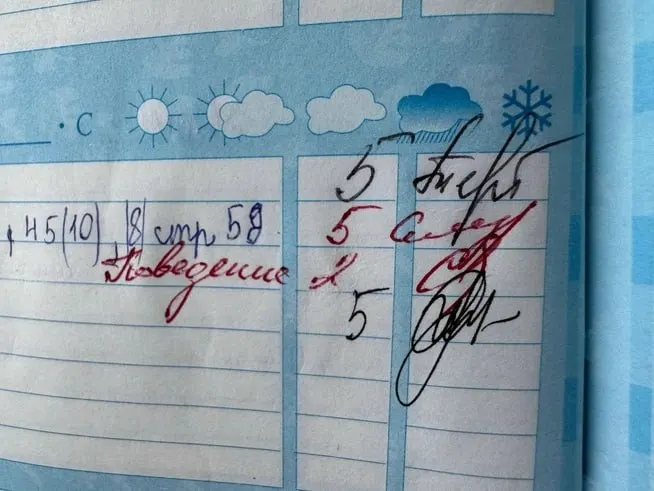 · С
5
, 45(10), |8| стр 58 5
Поведение 2
5